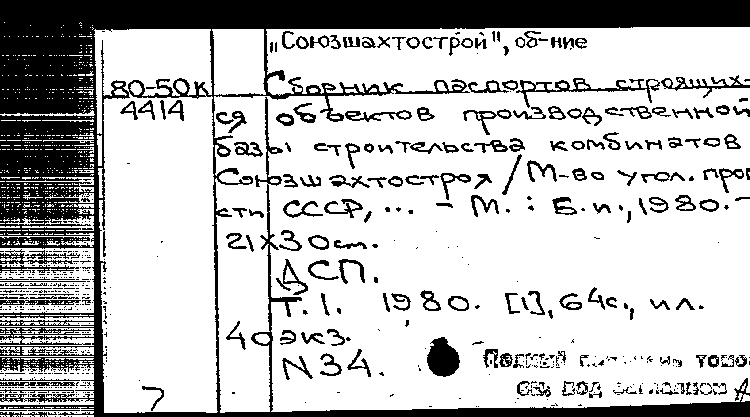 „Союзшахтострой", об-ние
80-50к Сборник паспортов строящих-
4414 ся объектов производственной
базы строительства комбинатов
Союзшахтостроя / М-во угол. про
сти СССР, ... - М. : Б.и., 1980. -
21х30см.
ДСП.
Т.1. 1980. [1], 64с., ил.
40экз.
N34.
Полный томо
см. под заглавном
7